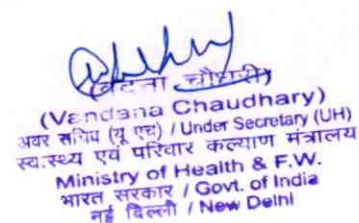 वंदना चौधरी
(Vandana Chaudhary)
अवर सचिव (यू एच) / Under Secretary (UH)
स्वास्थ्य एवं परिवार कल्याण मंत्रालय
Ministry of Health & F.W.
भारत सरकार / Govt. of India
नई दिल्ली / New Delhi